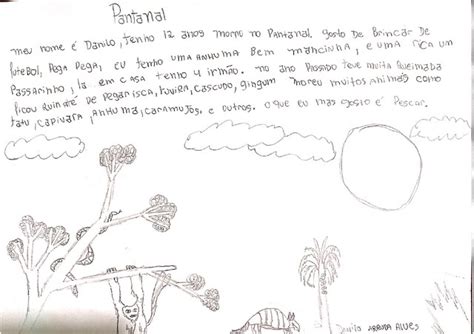 Pantanal
meu nome é Danilo, tenho 12 anos moro no Pantanal gosto De Brincar De
futeBol, Pega Pega, eu tenho uma anhuma Bem mancinha, e uma
Passarinho, la em casa tenho 4 irmão. no ano Passado teve muita queimada
ficou de Pegar isca, tuvira, cascudo, moreu muitos animais como
tatu, capivara, anhuma, caramujos. e outros. o que eu mas gosto é Pescar.
Danilo arruda Alves